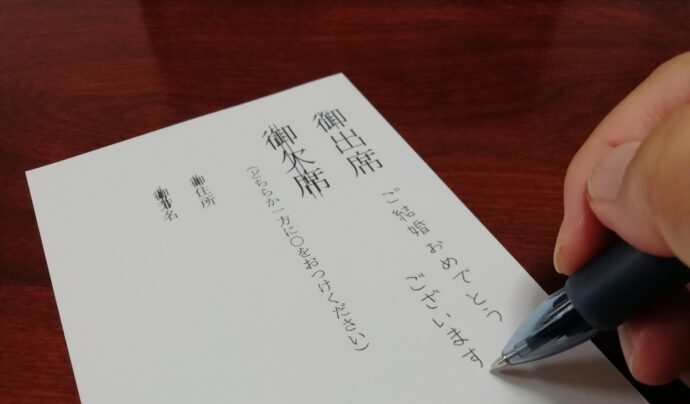 ご結婚おめでとう
ございます
御出席
御欠席
(どちらか一方に○をおつけください)
御住所
御芳名